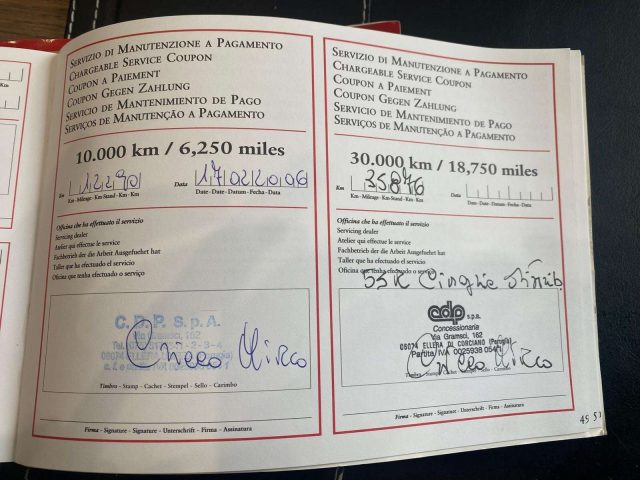 SERVIZIO DI MANUTENZIONE A PAGAMENTO
CHARGEABLE SERVICE COUPON
COUPON A PAIEMENT
COUPON GEGEN ZAHLUNG
SERVICIO DE MANTENIMIENTO DE PAGO
SERVIÇOS DE MANUTENÇÃO A PAGAMENTO
10.000 km / 6,250 miles
Km 12290 Data 17022006
Km - Mileage - Km-Stand - Km - Km Date - Date - Datum - Fecha - Data
Officina che ha effettuato il servizio
Servicing dealer
Atelier qui effectue le service
Fachbetrieb der die Arbeit Ausgefuehrt hat
Taller que ha efectuado el servicio
Oficina que tenha efectuado o serviço
C.D.P. S.p.A.
Via Gramsci, 162
06074 ELLERA
Timbro - Stamp - Cachet - Stempel - Sello - Carimbo
Firma - Signature - Signature - Unterschrift - Firma - Assinatura
SERVIZIO DI MANUTENZIONE A PAGAMENTO
CHARGEABLE SERVICE COUPON
COUPON A PAIEMENT
COUPON GEGEN ZAHLUNG
SERVICIO DE MANTENIMIENTO DE PAGO
SERVIÇOS DE MANUTENÇÃO A PAGAMENTO
30.000 km / 18,750 miles
Km 35876 Data
Km - Mileage - Km-Stand - Km - Km Date - Date - Datum - Fecha - Data
Officina che ha effettuato il servizio
Servicing dealer
Atelier qui effectue le service
Fachbetrieb der die Arbeit Ausgefuehrt hat
Taller que ha efectuado el servicio
Oficina que tenha efectuado o serviço
53K Cinghie
cdp s.p.a.
Concessionaria
Via Gramsci, 162
06074 ELLERA DI CORCIANO (Perugia)
Partita IVA 0025938 054
Timbro - Stamp - Cachet - Stempel - Sello - Carimbo
Firma - Signature - Signature - Unterschrift - Firma - Assinatura
45